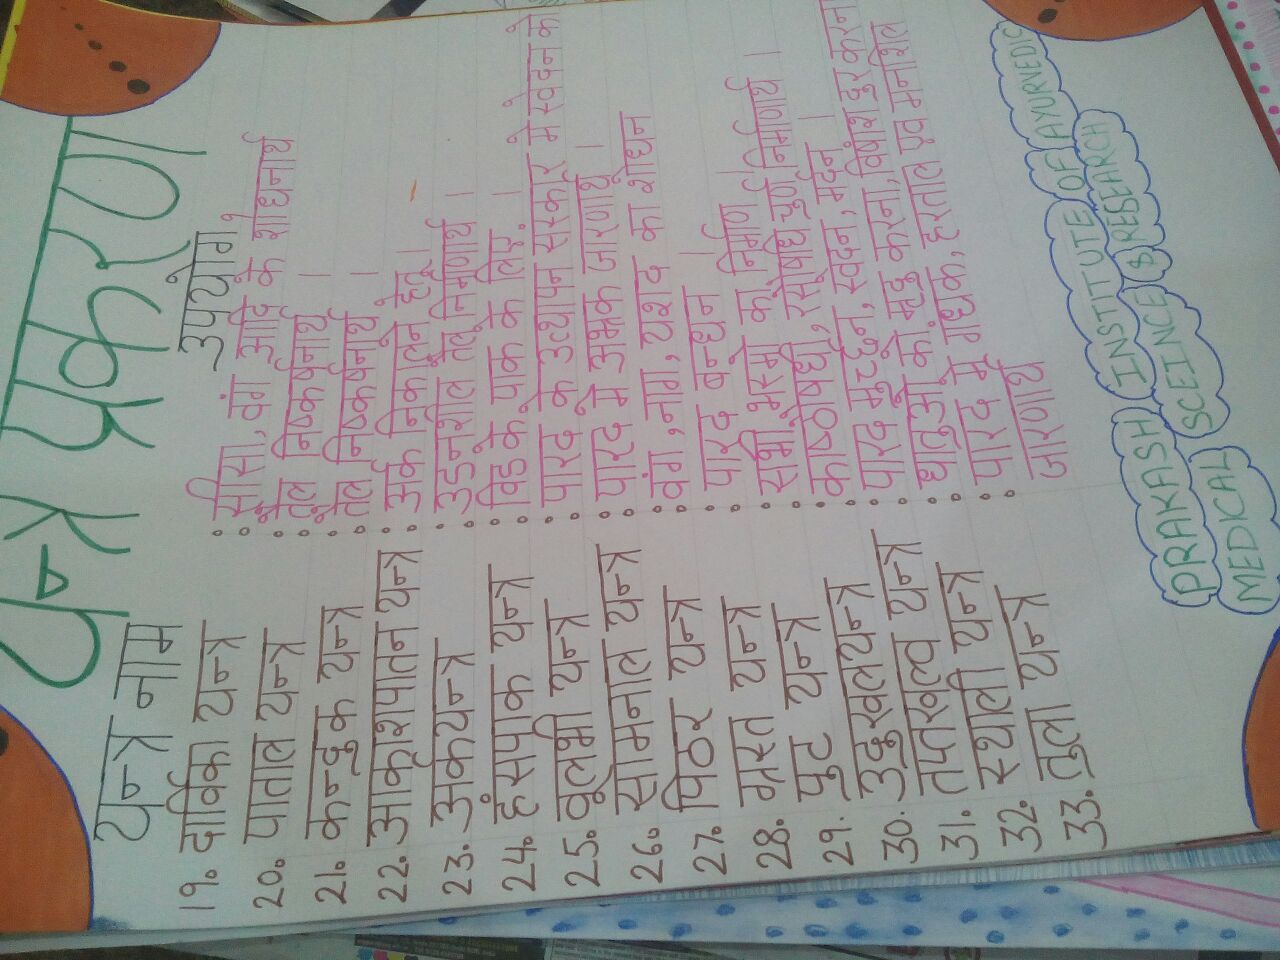 उपकरण
यन्त्र नाम
उपयोग
19. दार्विका यन्त्र : सीसा, वंग आदि के शोधनार्थ
20. पाताल यन्त्र : तैल निष्कर्षनार्थ ।
21. कन्दुक यन्त्र : तैल निष्कर्षनार्थ ।
22. आकाशपातन यन्त्र : अर्क निकालने हेतू ।
23. अर्कयन्त्र : उडनशील तैल निमार्णार्थ ।
24. हंसपाक यन्त्र : विड के पाक के लिए ।
25. वूलभी यन्त्र : पारद के उत्थापन संस्कार मे स्वेदन के
26. सोमनाल यन्त्र : पारद मे अभ्रक जारणार्थ ।
27. पिठर यन्त्र : वंग, नाग, यशद का शोधन
28. ग्रस्त यन्त्र : पारद बन्धन ।
29. पुट यन्त्र : सभी भस्मो का निर्माण ।
30. उदुखलयन्त्र : काष्ठौषधी, रसौषधि चुर्ण निर्माणार्थ ।
31. तप्तखल्व यन्त्र : पारद मुर्च्छन, स्वेदन, मर्दन ।
32. स्थाली यन्त्र : धातुओ को मृदु करना, विषांश दुर करना
33. तुला यन्त्र : पारद में गंधक, हरताल एवं मनःशिल
जारणार्थ
PRAKASH INSTITUTE OF AYURVEDIC
MEDICAL SCEINCE & RESEARCH